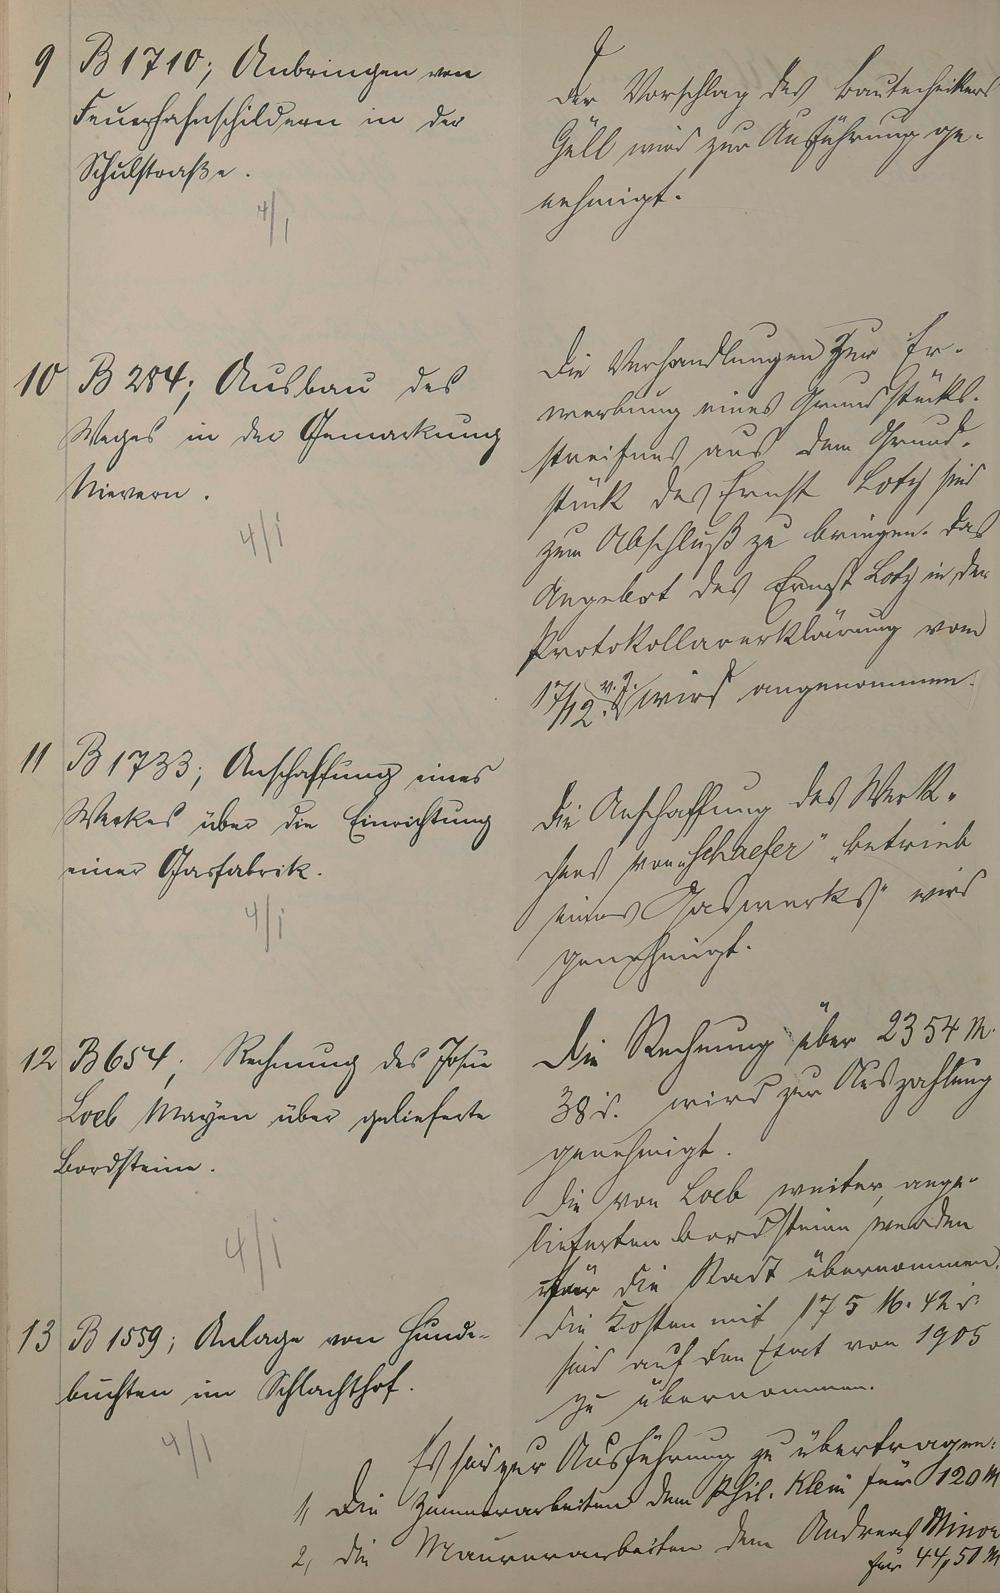 9 B 1710; Anbringen von
Feuerhahnschildern in der
Schulstraße.
4/1
Der Vorschlag des Bautechnikers
Güll wird zur Ausführung ge-
nehmigt.
10 B 284; Ausbau des
Weges in der Gemarkung
Nievern.
4/1
Die Verhandlungen zur Er-
werbung eines Grundstücks-
streifens aus dem Grund-
stück des Ernst Lotz sind
zum Abschluß zu bringen. Das
Angebot des Ernst Lotz in der
Protokollarerklärung vom
17/12. v. J. wird angenommen.
11 B 1733; Anschaffung eines
Werkes über die Einrichtung
einer Gasfabrik.
4/1
Die Anschaffung des Werk-
chens von „Schaefer" „Betrieb
eines Gaswerks" wird
genehmigt.
12 B 654; Rechnung des Josue
Loeb Mayen über gelieferte
Bordsteine.
4/1
Die Rechnung über 2354 M.
38 d. wird zur Auszahlung
genehmigt.
Die von Loeb weiter ange-
lieferten Bordsteine werden
für die Stadt übernommen.
Die Kosten mit 175 M. 42 d.
sind auf den Etat von 1905
zu übernommen.
13 B 1559; Anlage von Hunde-
buchten im Schlachthof.
4/1
Es sind zur Ausführung zu übertragen:
1, Die Zimmerarbeiten dem Phil. Klein für 120 M
2, die Maurerarbeiten dem Andreas Minor
für 44,50 M